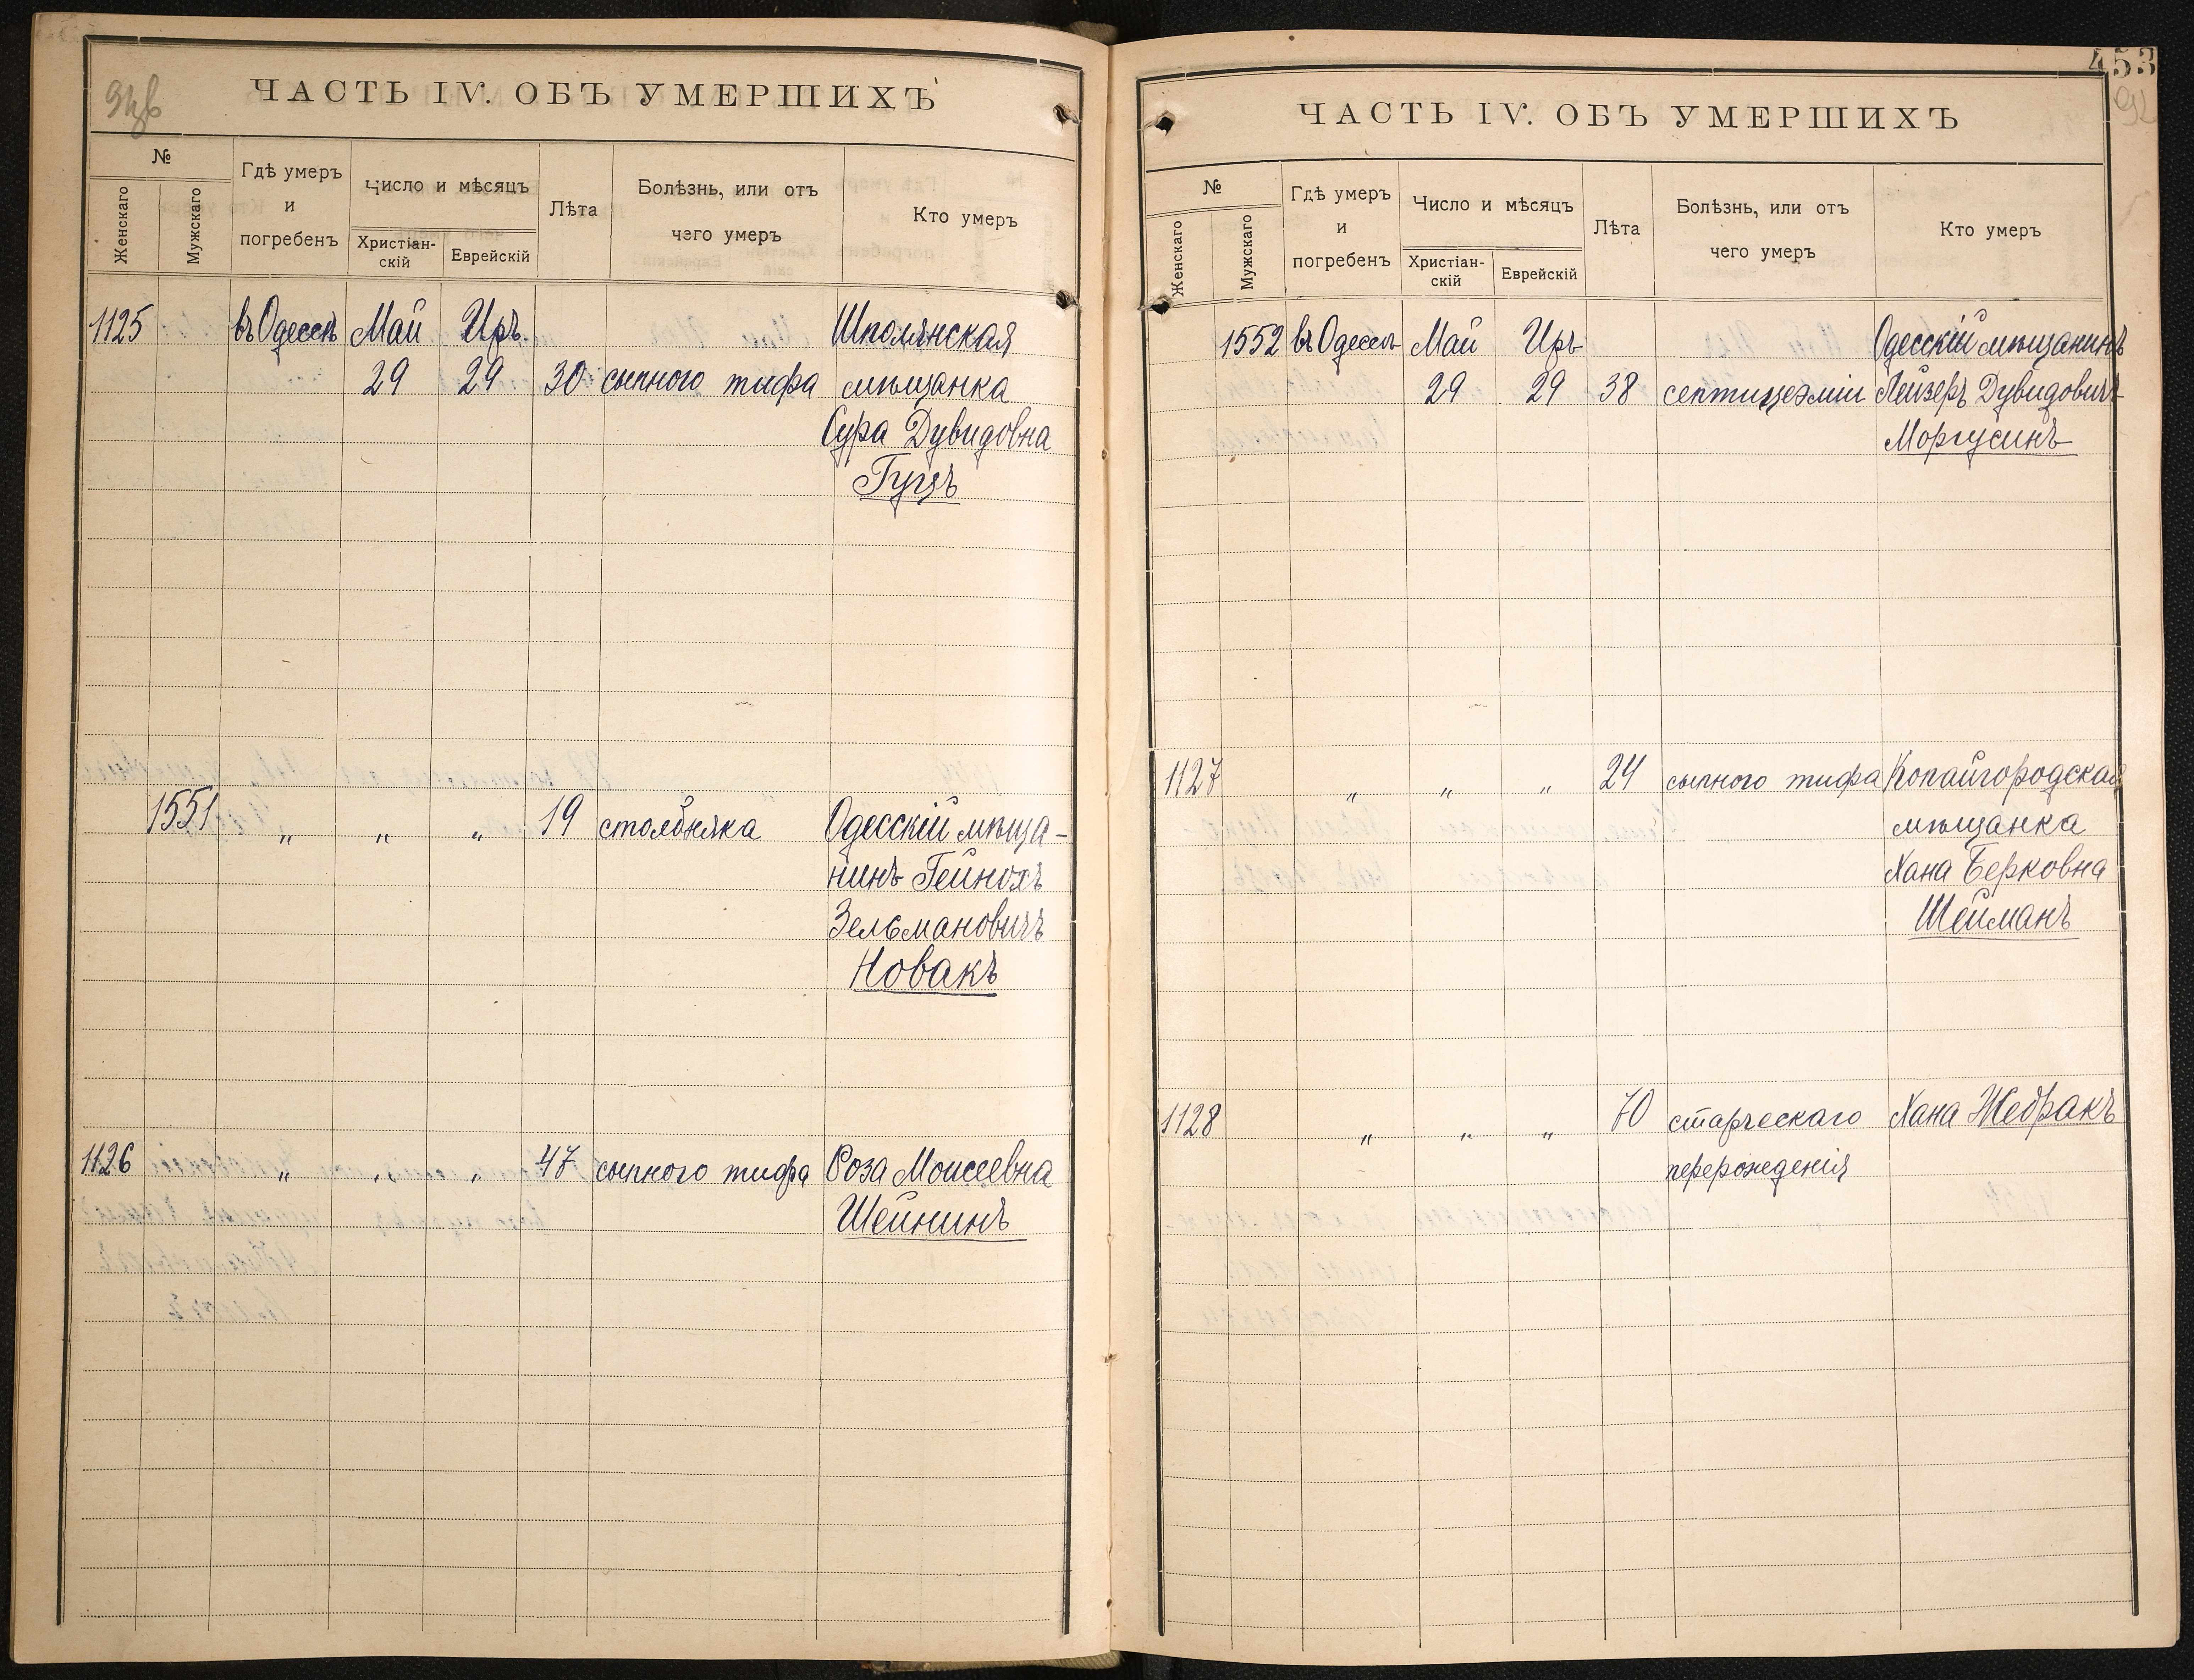 ЧАСТЬ IV. ОБЪ УМЕРШИХЪ
№
Женскаго
Мужскаго
Гдѣ умеръ
и
погребенъ
Число и мѣсяцъ
Христіан-
скій
Еврейскій
Лѣта
Болѣзнь, или отъ
чего умеръ
Кто умеръ
1125 въ Одессѣ Май Иръ Шполянская
29 29 30 сыпного тифа мѣщанка
Сура Дувидовна
Гузъ
1551 „ „ „ 19 столбняка Одесскій мѣща-
нинъ Гейнохъ
Зельмановичъ
Новакъ
1126 „ „ „ 47 сыпного тифа Роза Моисеевна
Шейнинъ
453
92
ЧАСТЬ IV. ОБЪ УМЕРШИХЪ
№
Женскаго
Мужскаго
Гдѣ умеръ
и
погребенъ
Число и мѣсяцъ
Христіан-
скій
Еврейскій
Лѣта
Болѣзнь, или отъ
чего умеръ
Кто умеръ
1552 въ Одессѣ Май Иръ Одесскій мѣщанинъ
29 29 38 септицэміи Лейзеръ Дувидовичъ
Моргусинъ
1127 „ „ „ 24 сыпного тифа Копайгородская
мѣщанка
Хана Берковна
Шейманъ
1128 „ „ „ 70 старческаго Хана Жебракъ
перерожденія